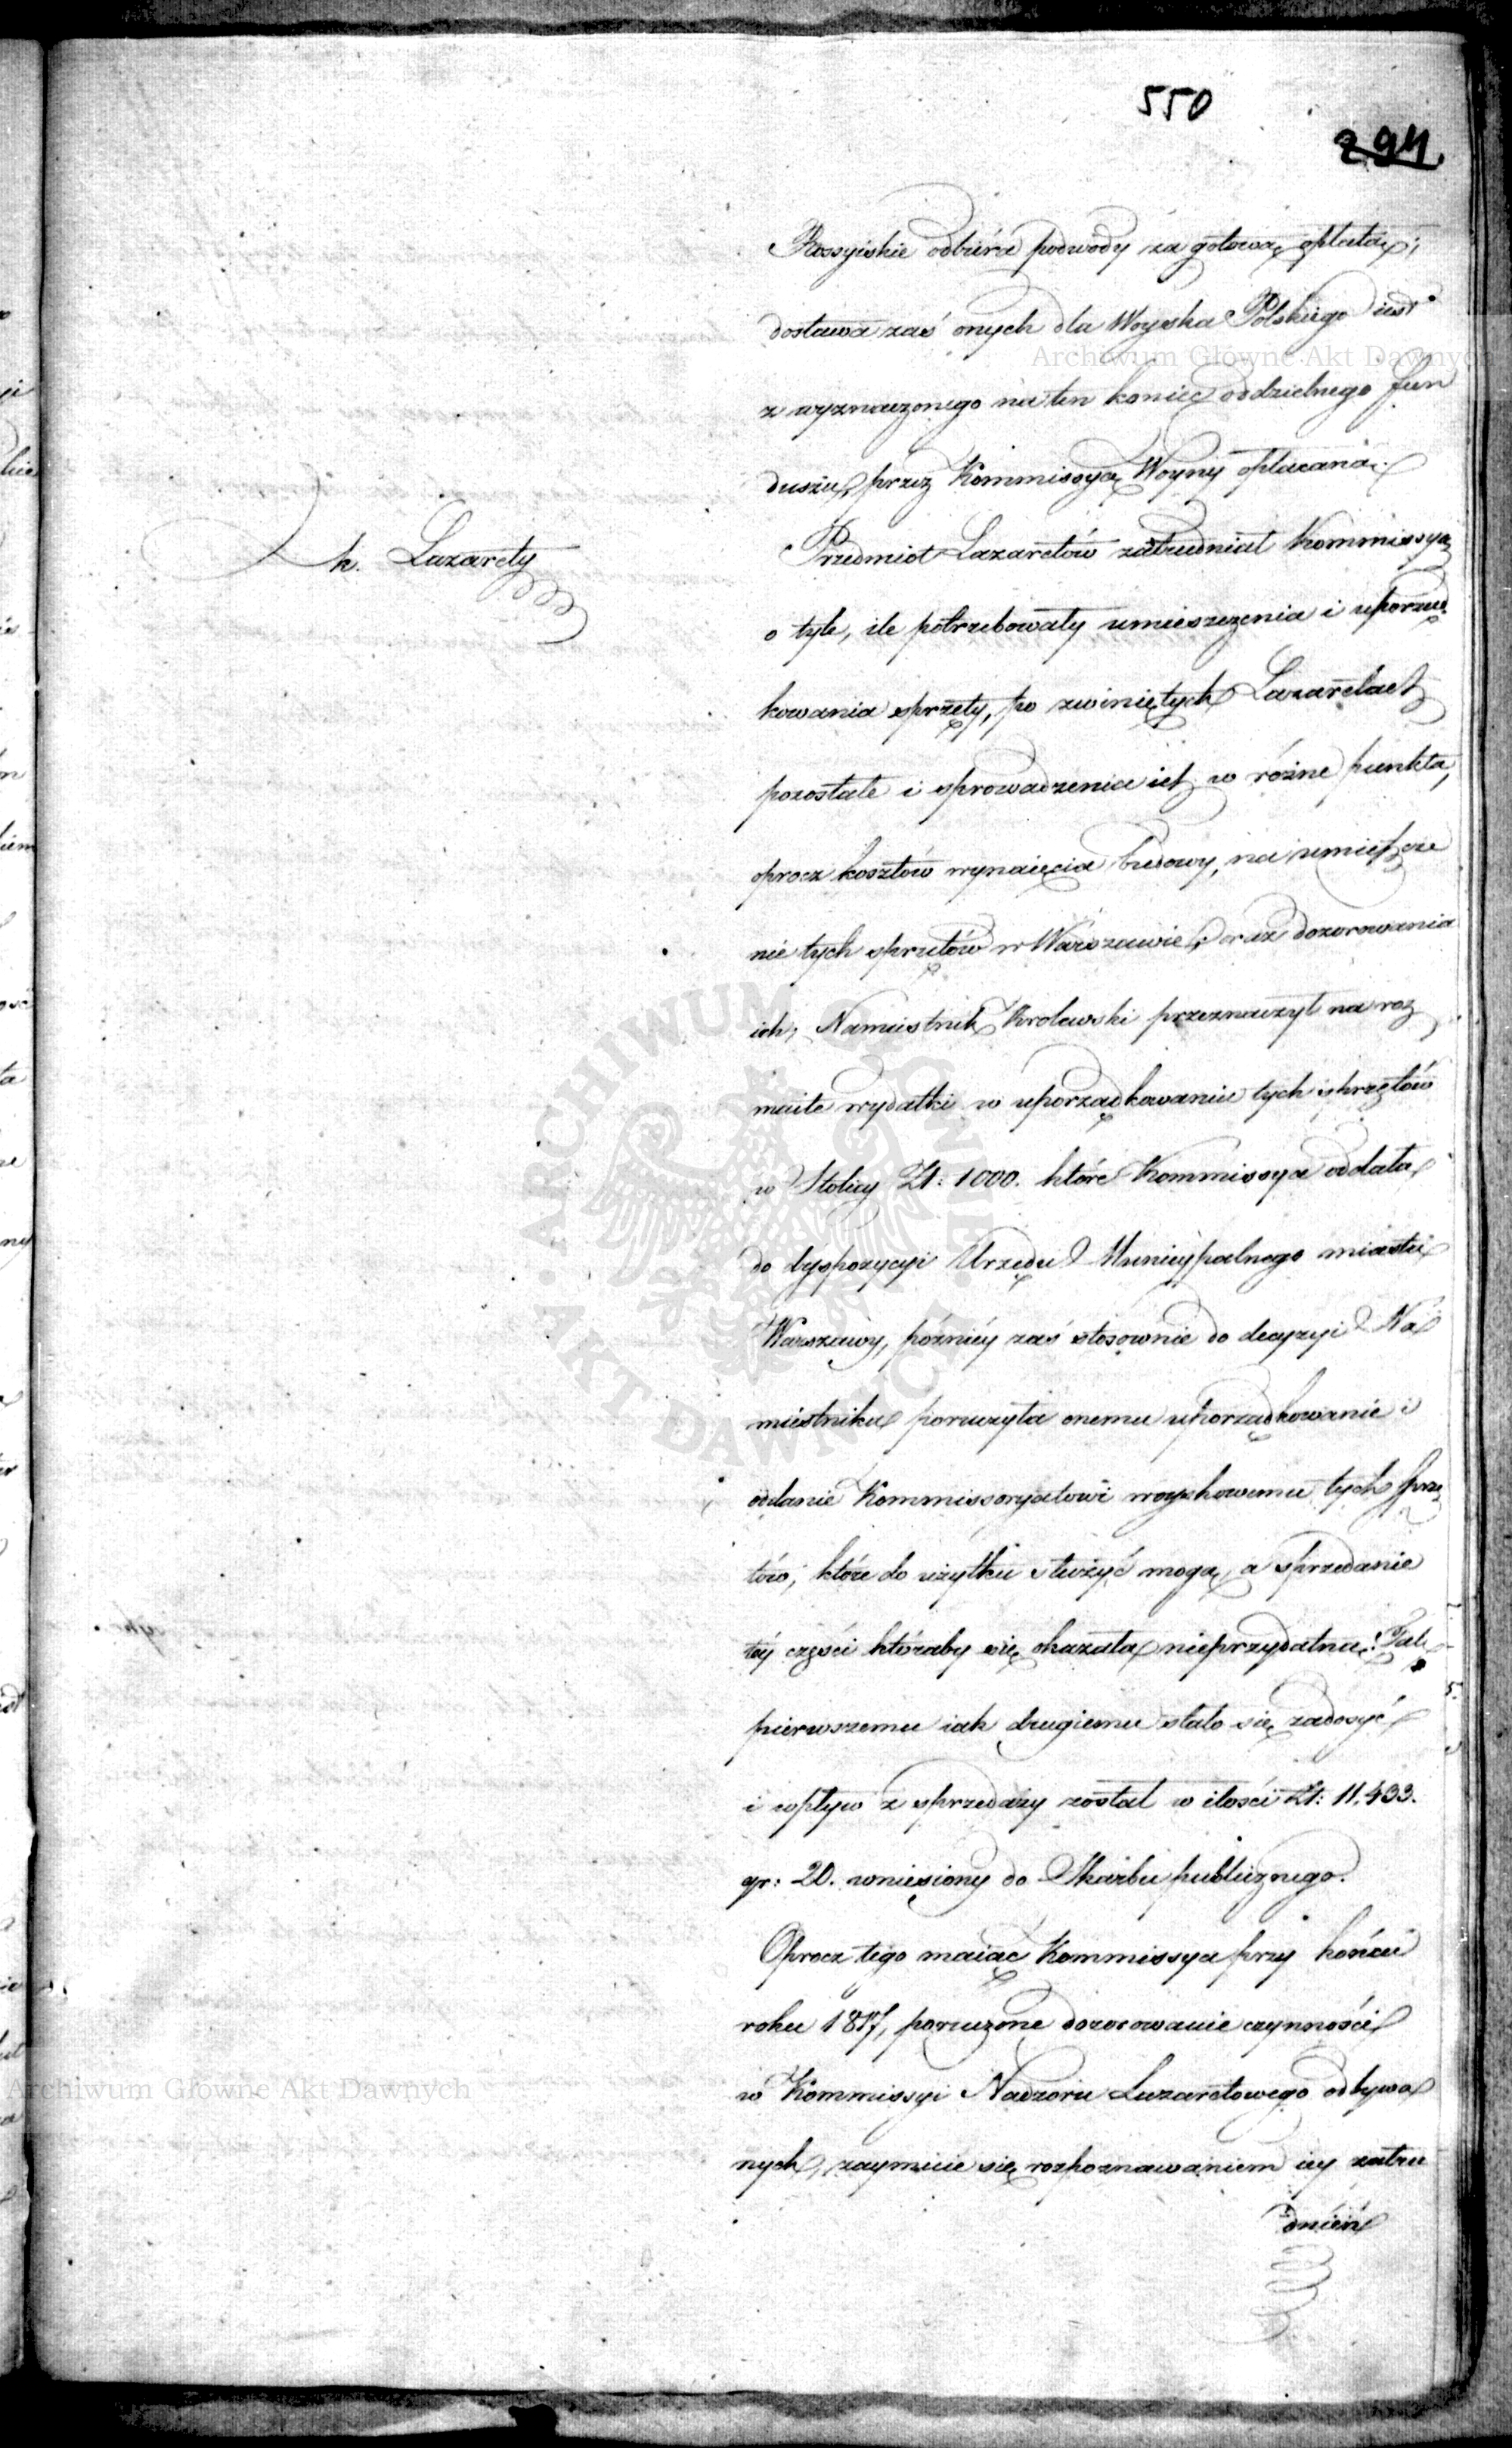 550
294
Rossyiskie odbiera podwody za gotową opłatą;
dostawa zaś onych dla Woyska Polskiego iest
z wyznaczonego na ten koniec oddzielnego fun
duszu, przez Kommissyą Woyny opłacaną.
k. Lazarety
Przedmiot Lazaretów zatrudniał Kommissyą
o tyle, ile potrzebowały umieszczenia i uporząd
kowania sprzęty, po zwiniętych Lazaretach
pozostałe i sprowadzenia ich w różne punkta,
oprocz kosztów wynaięcia budowy, na umieszcze
nie tych sprzętów w Warszawie, oraz dozorowania
ich; Namiestnik Krolewski przeznaczył na roz
maite wydatki w uporządkowaniu tych sprzętów
w Stolicy Zł: 1000. które Kommissya oddała
do dyspozycyi Urzędu Municypalnego miasta
Warszawy, późniéy zaś stosownie do decyzyi Na
miestnika poruczyła onemu uporządkowanie i
oddanie Kommissoryatowi woyskowemu tych sprzę
tów, które do użytku służyć mogą, a sprzedanie
téy części któraby się okazała nieprzydatną. Tak
pierwszemu iak drugiemu stało się zadosyć
i wpływ z sprzedaży został w ilości Zł: 11,433.
gr: 20. wniesiony do Skarbu publicznego.
Oprocz tego maiąc Kommissya przy końcu
roku 1817, poruczone dozorowanie czynności
w Kommissyi Nadzoru Lazaretowego odbywa
nych, zaymuie się rozpoznawaniem iey zatru
dnień
Archiwum Główne Akt Dawnych
Archiwum Główne Akt Dawnych
ARCHIWUM GŁÓWNE AKT DAWNYCH